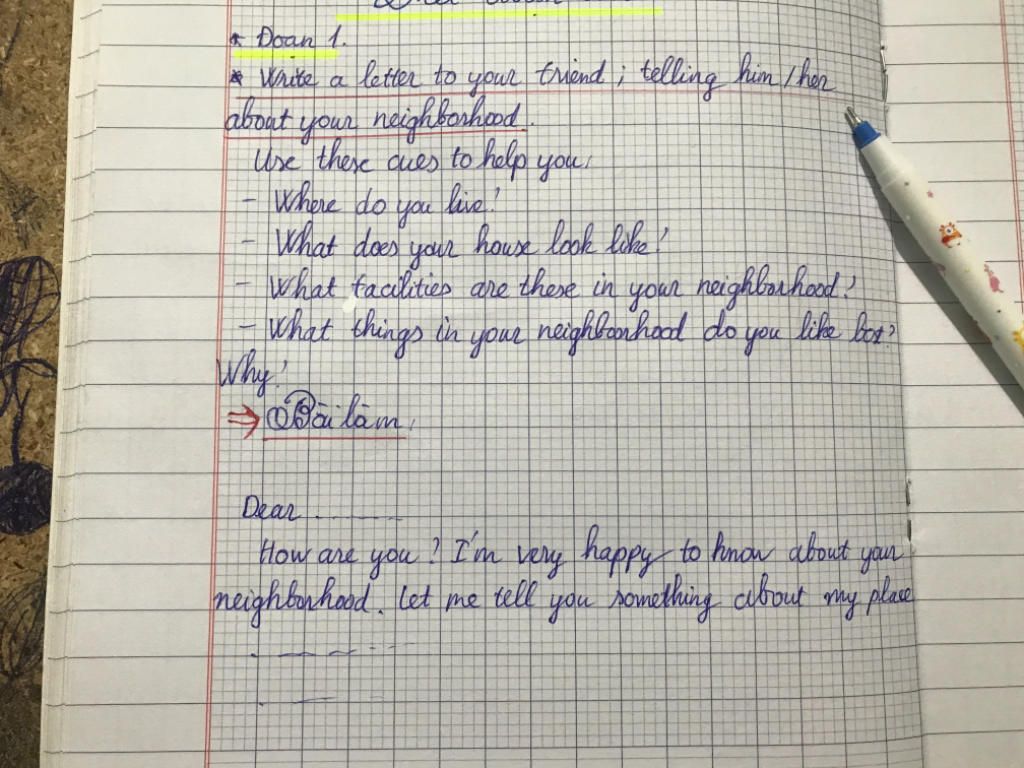 * Đoạn 1.
* Write a letter to your friend ; telling him / her
about your neighborhood.
Use these cues to help you.
- Where do you live?
- What does your house look like?
- What facilities are there in your neighborhood?
- What things in your neighborhood do you like bost?
Why?
⇒ Bài làm.
Dear .........
How are you ? I'm very happy to know about your
neighborhood. Let me tell you something about my place